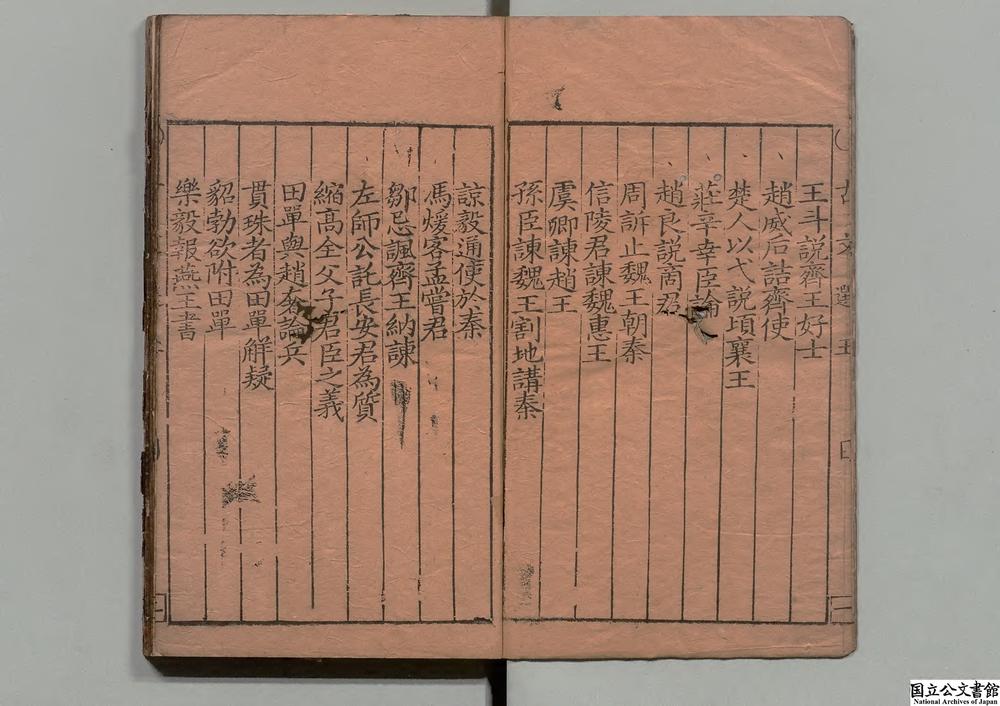 王斗説齊王好士
趙威后詰齊使
楚人以弋説頃襄王
莊辛幸臣論
趙良説商君
周訢止魏王朝秦
信陵君諫魏惠王
虞卿諫趙王
孫臣諫魏王割地講秦
諒毅通使於秦
馮煖客孟嘗君
鄒忌諷齊王納諫
左師公託長安君為質
縮高全父子君臣之義
田單與趙奢論兵
貫珠者為田單解疑
貂勃欲附田單
樂毅報燕王書
国立公文書館
National Archives of Japan